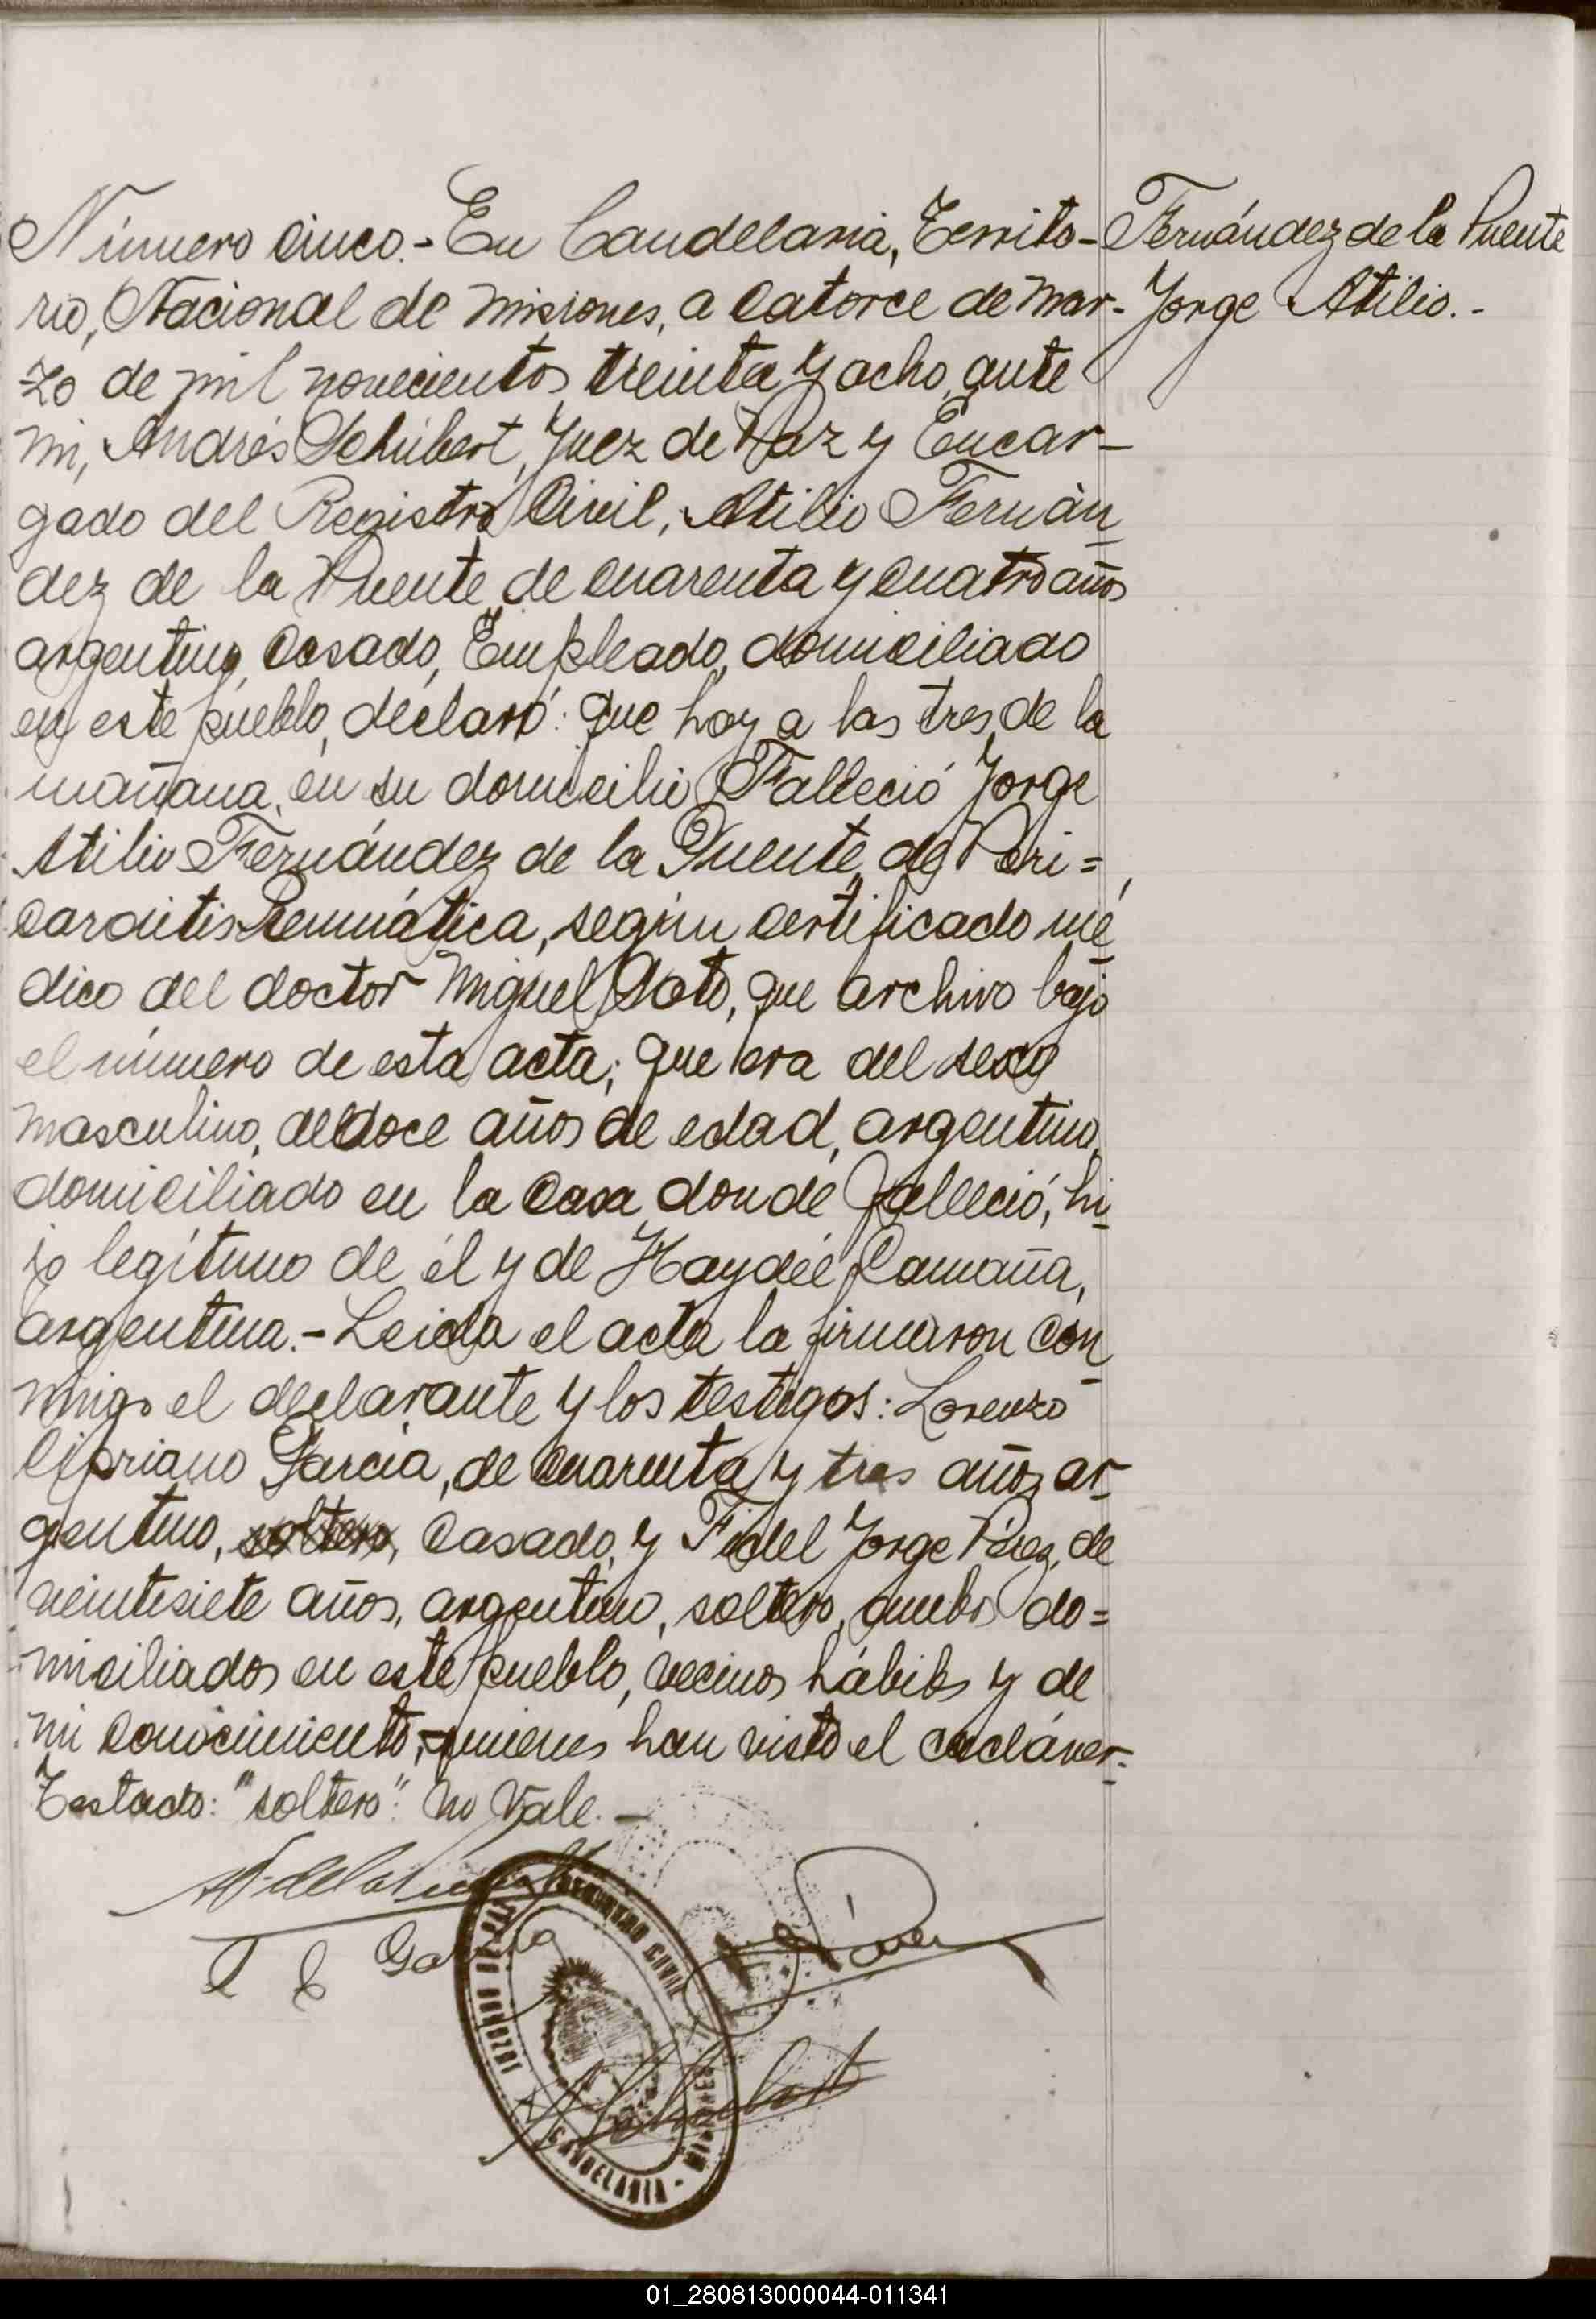 Número cinco.- En Candelaria, Territo-
rio, Nacional de Misiones, a catorce de Mar-
zo de mil novecientos treinta y ocho, ante
mi, Andrés Schubert, Juez de Paz y Encar-
gado del Registro Civil, Atilio Fernán
dez de la Puente, de cuarenta y cuatro años
argentino, casado, Empleado, domiciliado
en este pueblo, declaró: que hoy a las tres de la
mañana, en su domicilio Falleció Jorge
Atilio Fernández de la Puente, de Peri=
carditis Reumática, según certificado mé
dico del doctor Miguel Soto, que archivo bajo
el número de esta acta; que era del sexo
masculino, de doce años de edad, argentino,
domiciliado en la casa donde falleció, hi
jo legítimo de él y de Haydée Camaña,
argentina.- Leida el acta la firmaron con
migo el declarante y los testigos: Lorenzo
Cipriano García, de cuarenta y tres años, ar
gentino, soltero, casado, y Fidel Jorge Páez, de
veintisiete años, argentino, soltero, ambos do=
miciliados en este pueblo, vecinos hábiles y de
mi conocimiento, quienes han visto el cadáver.-
Testado: "soltero": no vale.-
Fernández de la Puente
Jorge Atilio.-
de la Puente
García
REGISTRO CIVIL
CANDELARIA
MISIONES
01_280813000044-011341